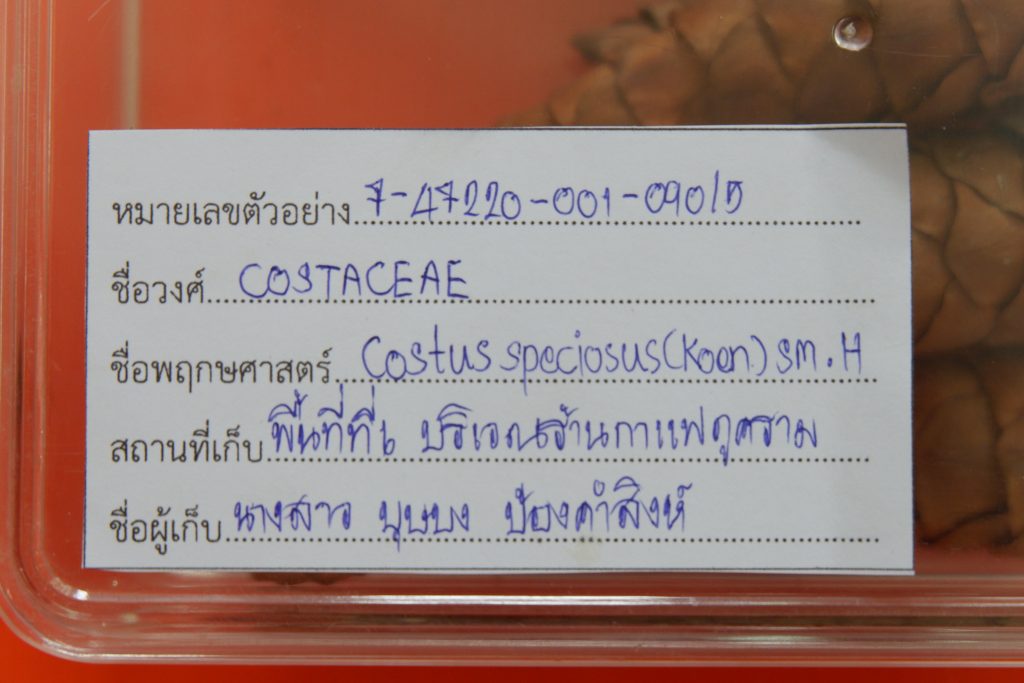 หมายเลขตัวอย่าง 7-47220-001-090/5
ชื่อวงศ์ COSTACEAE
ชื่อพฤกษศาสตร์ Costus speciosus (Koen.) sm. H
สถานที่เก็บ พื้นที่ที่ 6 บริเวณร้านกาแฟภูคราม
ชื่อผู้เก็บ นางสาว บุษบง ป้องคำสิงห์